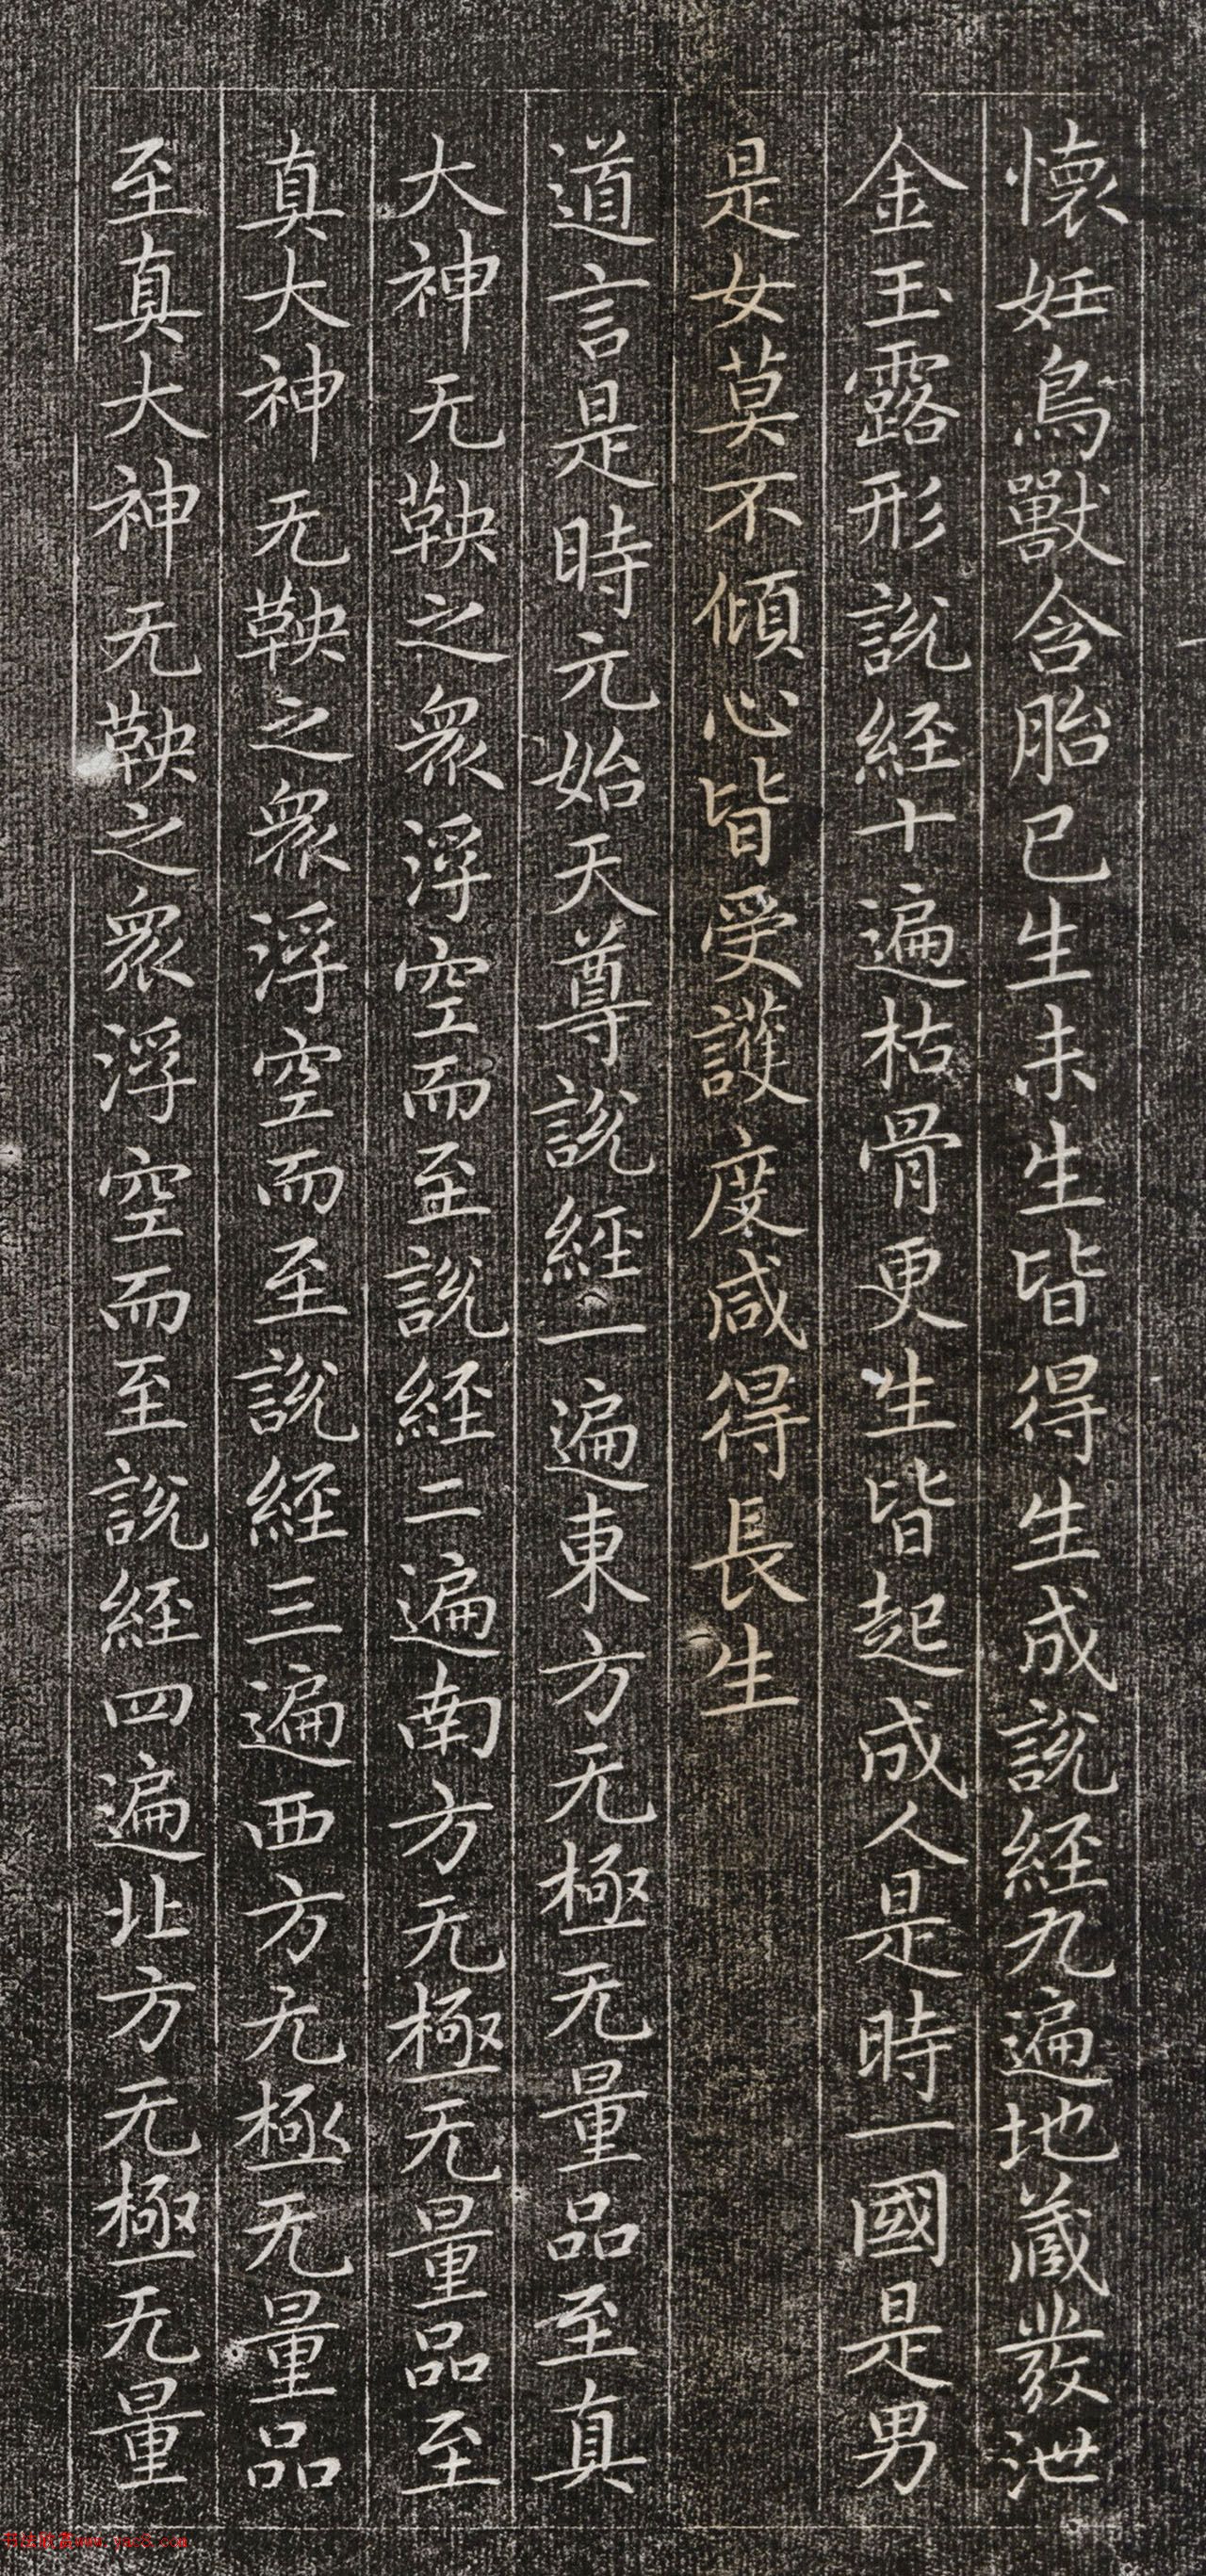 懷妊鳥獸含胎已生未生皆得生成說經九遍地藏發泄
金玉露形說經十遍枯骨更生皆起成人是時一國是男
是女莫不傾心皆受護度咸得長生
道言是時元始天尊說經一遍東方无極无量品至真
大神无鞅之衆浮空而至說経二遍南方无極无量品至
真大神无鞅之衆浮空而至說経三遍西方无極无量品
至真大神无鞅之衆浮空而至說経四遍北方无極无量
书法欣赏www.yac8.com